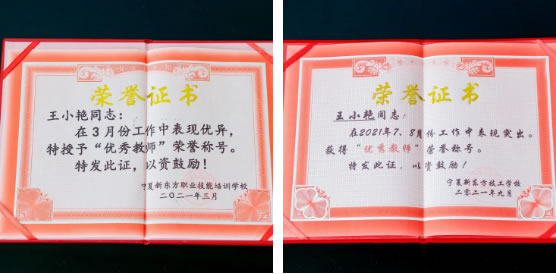 荣誉证书
王小艳同志：
在3月份工作中表现优异，
特授予“优秀教师”荣誉称号。
特发此证，以资鼓励！
宁夏新东方职业技能培训学校
二〇二一年三月
荣誉证书
王小艳同志：
在2021年7、8月份工作中表现突出。
获得“优秀教师”荣誉称号。
特发此证，以资鼓励！
宁夏新东方技工学校
二零二一年九月